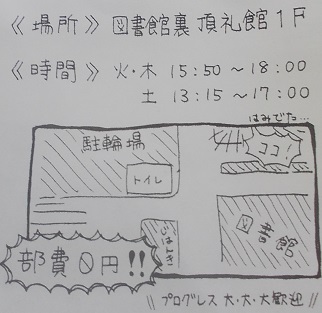 《場所》 図書館裏 頂礼館1F
《時間》 火・木 15:50～18:00
土 13:15～17:00
はみでた…
ココ!
駐輪場
トイレ
図書館
部費0円!!
\\ プログレス 大・大・大歓迎 //